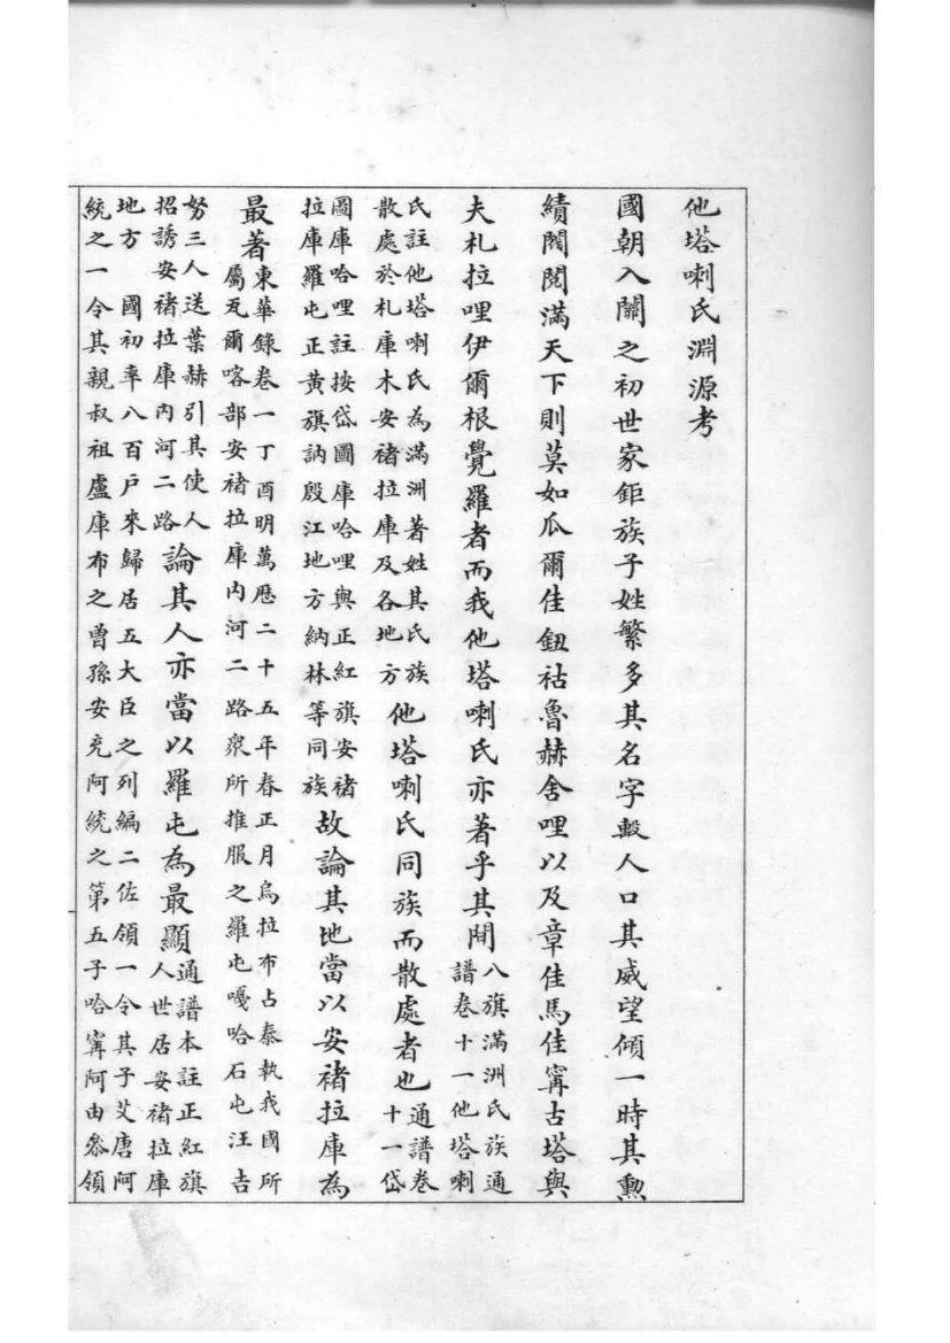 他塔喇氏淵源考
國朝入關之初世家鉅族子姓繁多其名字轂人口其威望傾一時其勲
績閥閱滿天下則莫如瓜爾佳鈕祜魯赫舍哩以及章佳馬佳甯古塔與
夫札拉哩伊爾根覺羅者而我他塔喇氏亦著乎其間八旗滿洲氏族通
譜卷十一他塔喇
氏註他塔喇氏為滿洲著姓其氏族
散處於札庫木安褚拉庫及各地方他塔喇氏同族而散處者也通譜卷
十一岱
圖庫哈哩註按岱圖庫哈哩與正紅旗安褚
拉庫羅屯正黃旗訥殷江地方納林等同族故論其地當以安褚拉庫為
最著東華錄卷一丁酉明萬歷二十五年春正月烏拉布占泰執我國所
屬瓦爾喀部安褚拉庫內河二路衆所推服之羅屯嘎哈石屯汪吉
努三人送葉赫引其使人
招誘安褚拉庫內河二路論其人亦當以羅屯為最顯通譜本註正紅旗
人世居安褚拉庫
地方 國初率八百戶來歸居五大臣之列編二佐領一令其子艾唐阿
統之一令其親叔祖盧庫布之曾孫安充阿統之第五子哈甯阿由叅領